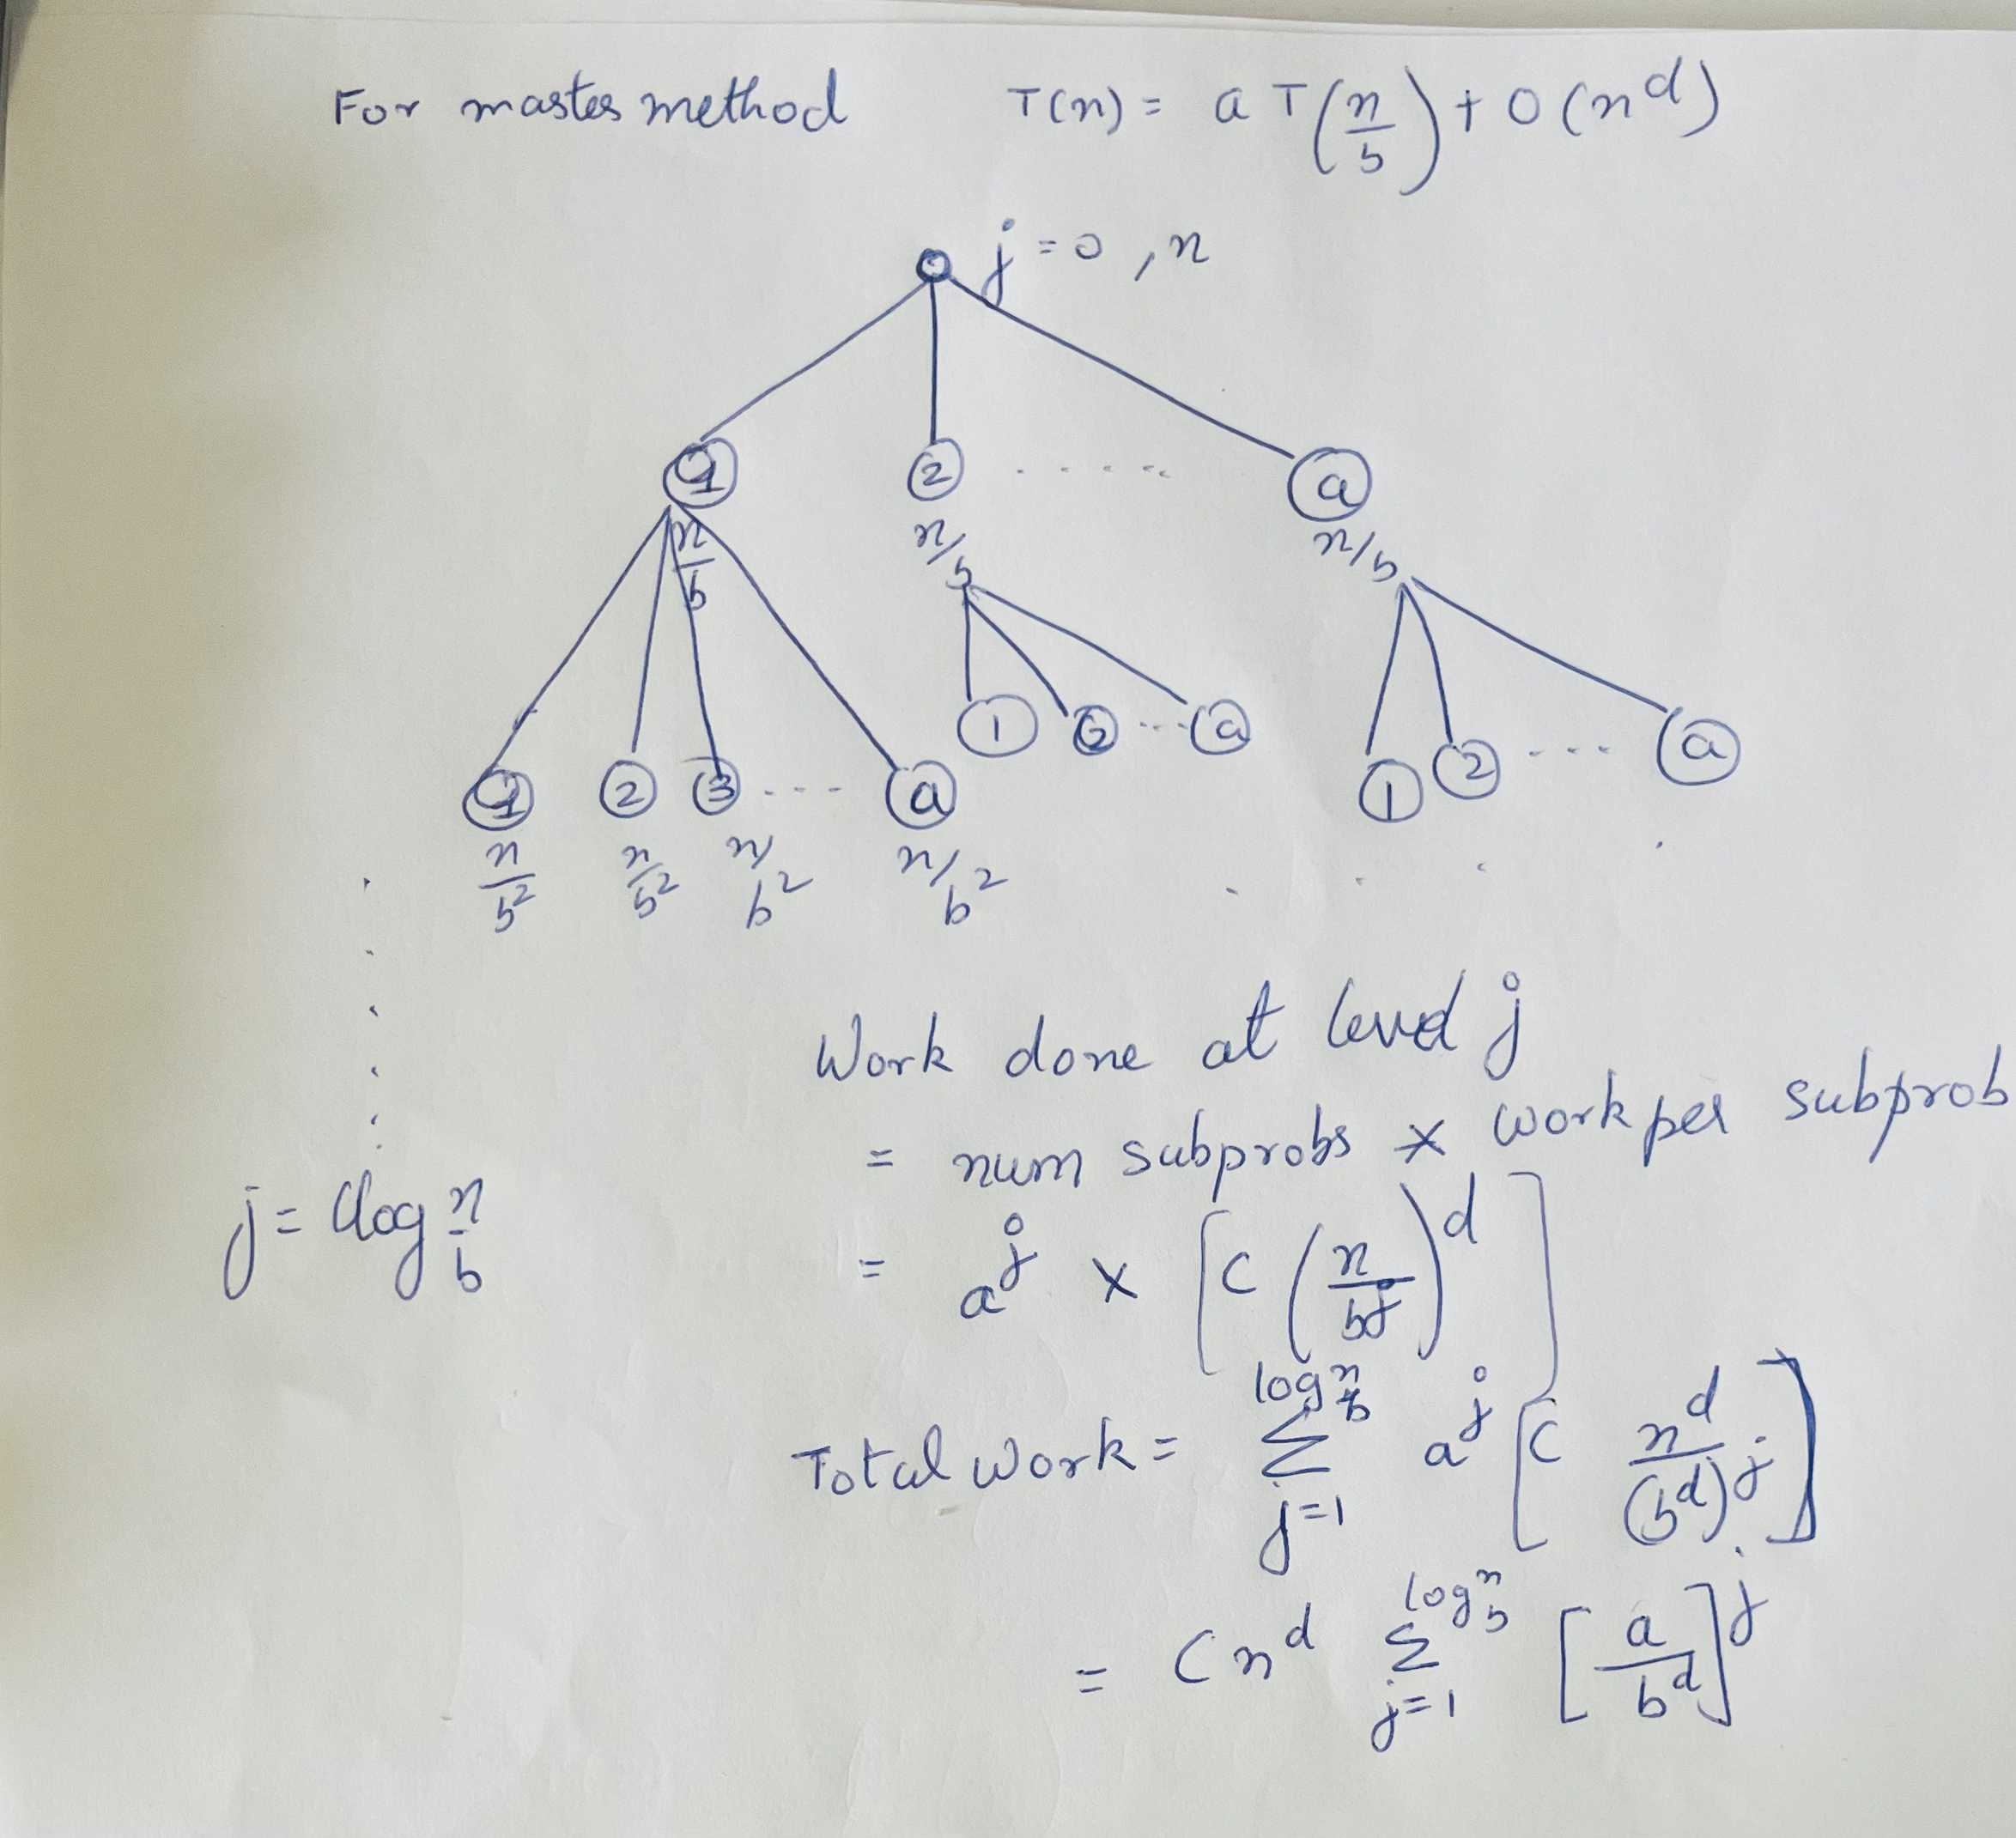 For master method T(n) = a T(n/b) + O(n^d)
j = 0 , n
1 2 ..... a
n/b n/b n/b
1 2 3 .... a 1 2 ... a 1 2 ... a
n/b^2 n/b^2 n/b^2 n/b^2
Work done at level j
= num subprobs × work per subprob
j = log n/b
= a^j × [C (n/b^j)^d]
Total work = Σ_{j=1}^{log_b n} a^j [C n^d/(b^d)^j]
= C n^d Σ_{j=1}^{log_b n} [a/b^d]^j